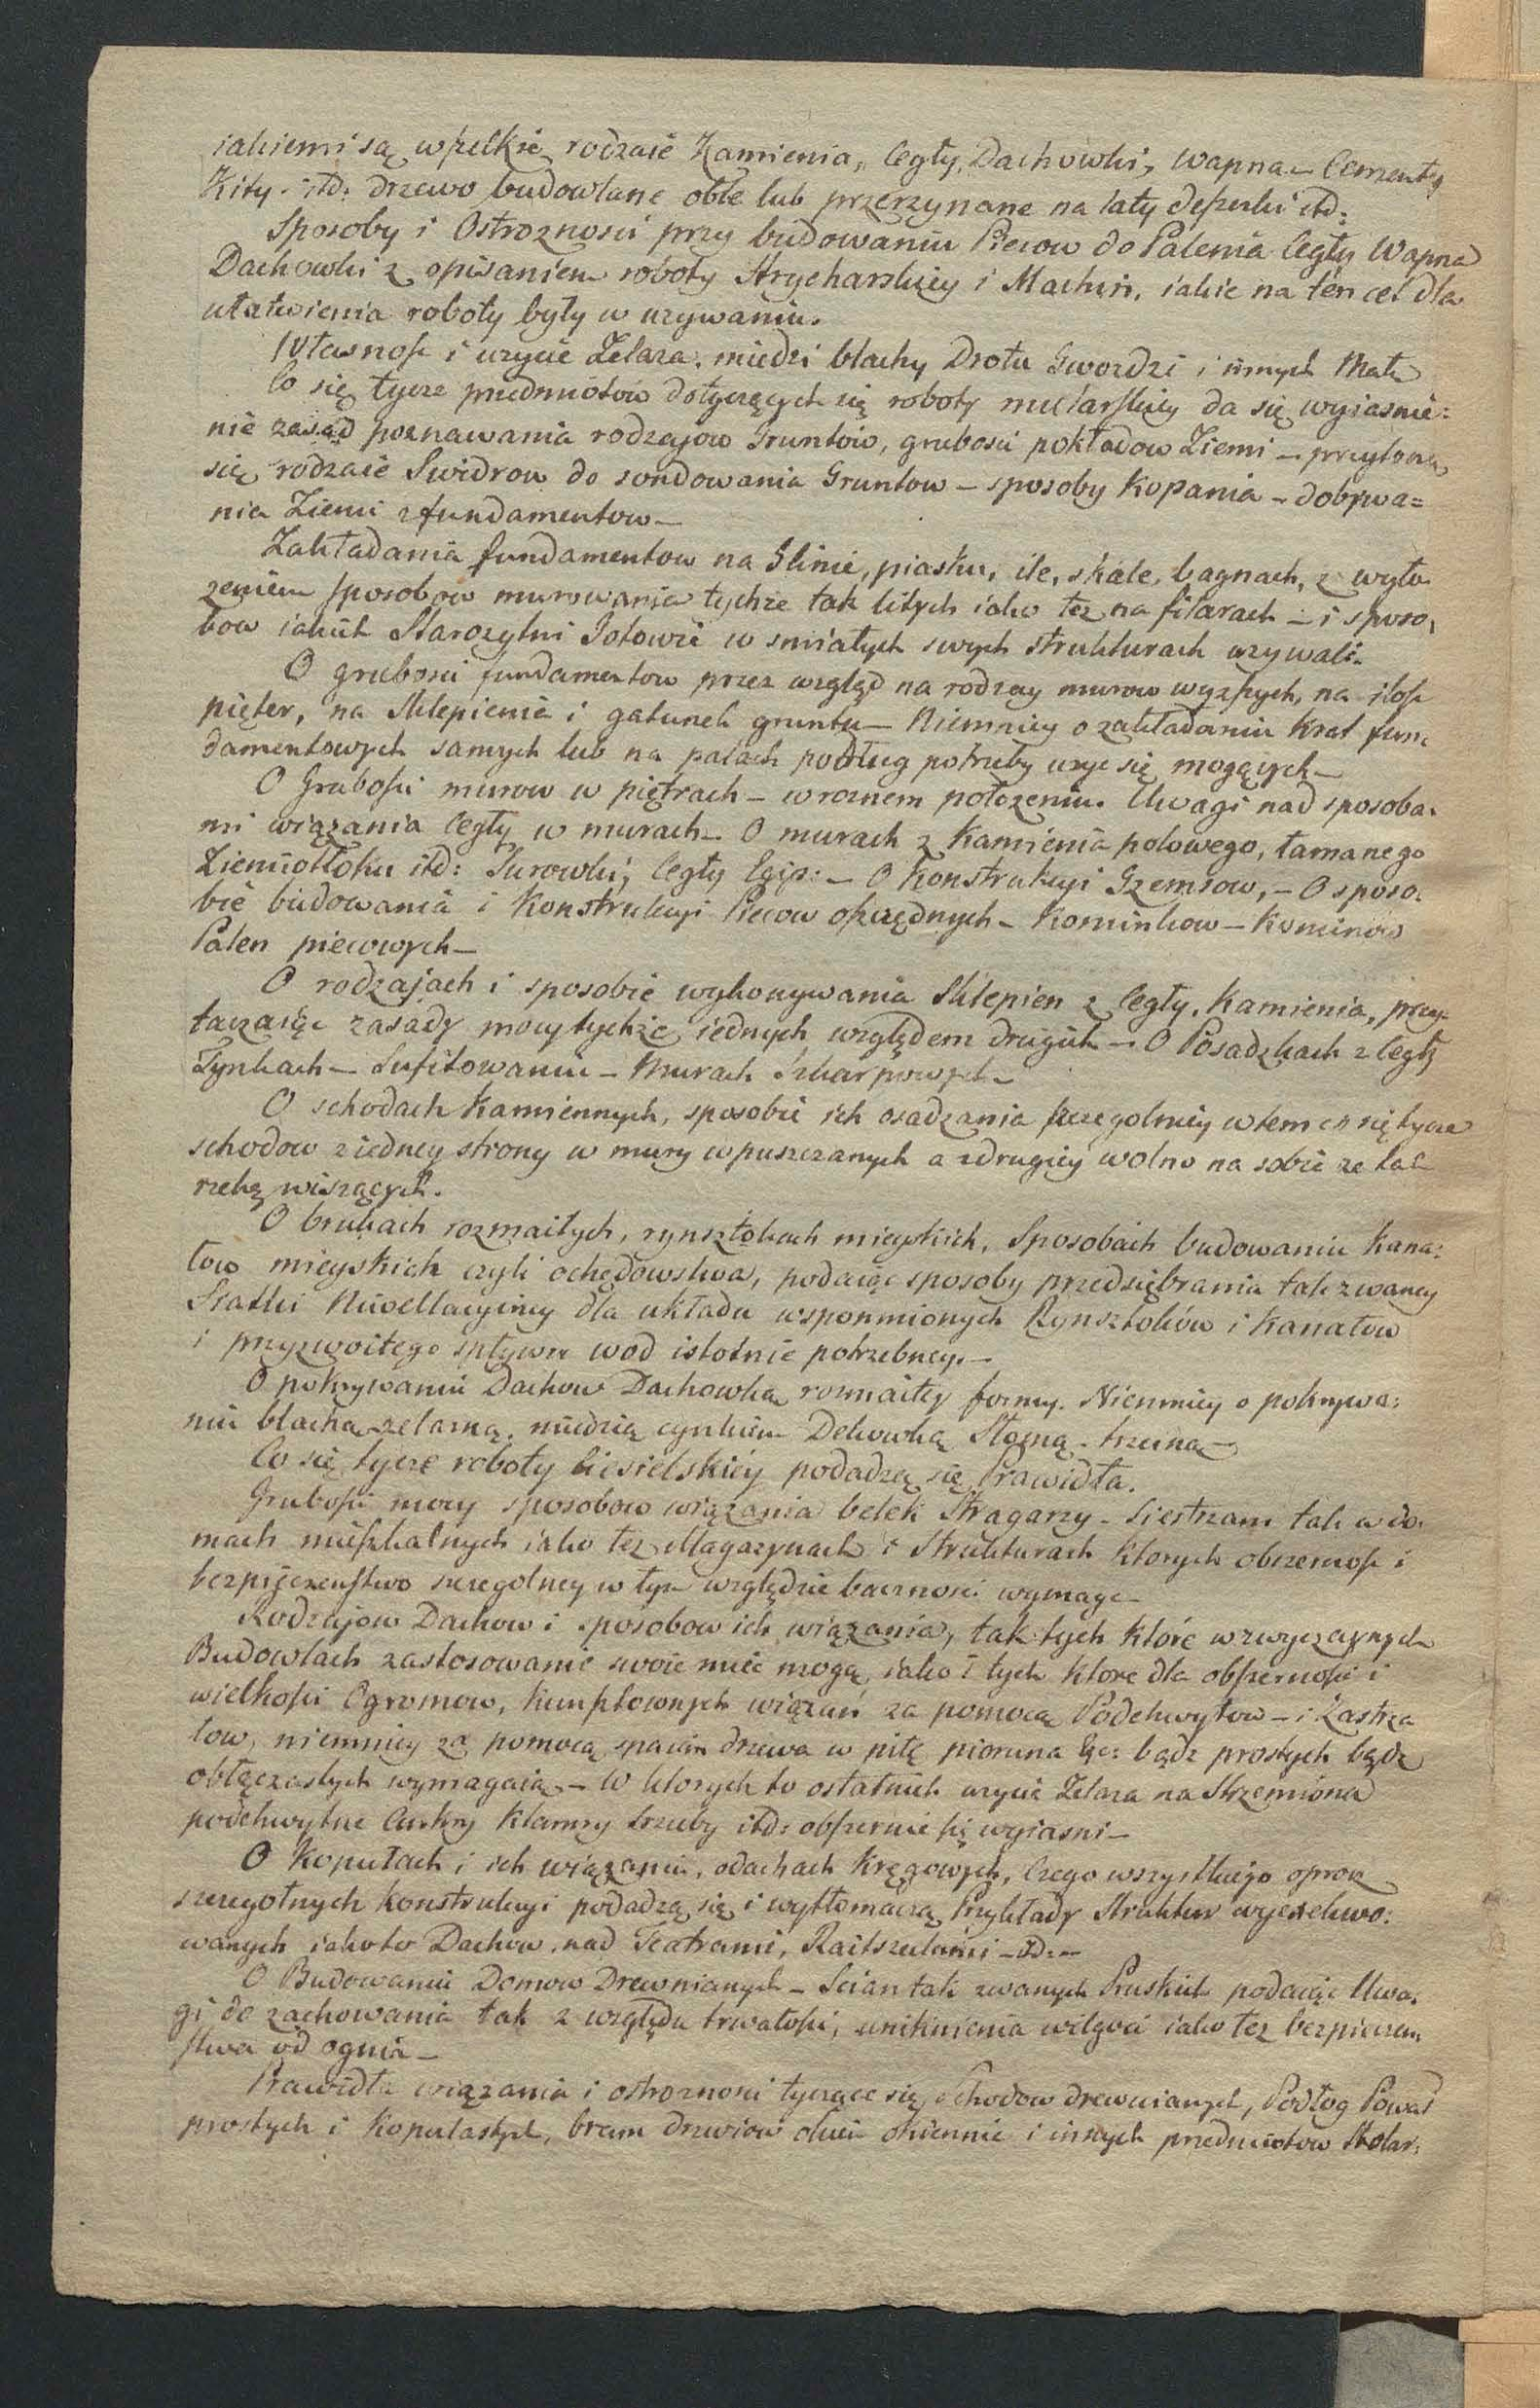 iakiemi są wszelkie rodzaie Kamienia, Cegły, Dachowki, Wapna – Cementy
Kity. itd: drzewo budowlane oble lub przerzynane na łaty deszczki itd:
Sposoby i Ostroznosci przy budowaniu Piecow do Palenia Cegły Wapna
Dachowki z opisaniem roboty Strycharskiey i Machin, iakie na ten cel dla
ułatwienia roboty były w uzywaniu.
Własnosc i uzycie Zelaza, miedzi blachy Drotu Gwozdzi i innych Mat:
Co się tycze przedmiotów dotyczących się roboty mularskiey da się wyiasnie=
nie zasad poznawania rodzajow Gruntów, grubosci pokładow Ziemi – przytoczą
się rodzaie Swidrow do sondowania Gruntow – sposoby Kopania – dobywa=
nia Ziemi z fundamentow –
Zakładania fundamentow na Glinie, piasku, ile, skale, bagnach, z wyło
zeniem sposobow murowania tychze tak litych iako tez na filarach – i sposo,
bow iakich Starozytni Gotowie w smiałych swych strukturach uzywali.
O grubosci fundamentow przez wzgląd na rodzay murow wyzszych, na ilosc
pięter, na Sklepienia i gatunek gruntu – Niemniey o zakładaniu Krat fun:
damentowych samych lub na palach podług potrzeby uzyc się mogących –
O Grubosci murow w piętrach – w roznem położeniu. Uwagi nad sposoba.
mi wiązania Cegły w murach – O murach z Kamienia polowego, łamanego
Ziemiotłoku itd: Surowki, Cegły Egip: – O Konstrukcyi Gzemsow, – O sposo.
bie budowania i Konstrukcyi Piecow oszczędnych – Kominkow – Kominów
Palen piecowych –
O rodzajach i sposobie wykonywania Sklepien z Cegły, Kamienia, przy-
taczaiąc zasady mocy tychże iednych względem drugich – O Posadzkach z Cegły
Tynkach – Sufitowaniu – Murach Szkarpowych –
O schodach Kamiennych, sposobie ich osadzania szczegolniey w tem co się tycze
schodow z iedney strony w mury wpuszczanych a z drugiey wolno na sobie ze tak
rzekę wiszących.
O brukach rozmaitych, rynsztokach mieyskich, Sposobach budowaniu Kana:
łow mieyskich czyli ochędowstwa, podaiąc sposoby przedsiębrania tak zwaney
Siatki Niwellacyiney dla układu wspomnionych Rynsztoków i Kanałow
i przyzwoitego spływu wod istotnie potrzebney. –
O pokrywaniu Dachow Dachowką rozmaitey formy. Niemniey o pokrywa:
niu blachą zelazną, miedzią cynkiem Dekowką Słomą – trzciną –
Co się tycze roboty Ciesielskiey podadzą się Prawidła.
Grubosci mocy sposobow wiązania belek Stragarzy – Siestrzan tak w do.
mach mieszkalnych iako tez Magazynach i Strukturach ktorych obszernosc i
bezpieczenstwo szczegolney w tym względzie bacznosci wymaga –
Rodzajow Dachow i sposobow ich wiązania, tak tych które w zwyczaynych
Budowlach zastosowanie swoie miec mogą, iako i tych ktore dla obszernosci i
wielkosci Ogromow, Kunsztownych wiązań za pomocą Podchwytow – i Zastrza
łow, niemniey za pomocą spaian drzewa w piłę pioruna &c: bądz prostych bądz
obłączastych wymagaią – W ktorych to ostatnich uzycie Zelaza na Strzemiona
podchwytne Ankry Klamry szruby itd: obszernie się wyiasni –
O Kopułach i ich wiązaniu, o dachach Kręgowych, Czego wszystkiego oprocz
szczegolnych Konstrukcyi podadzą się i wytłomaczą Przykłady Struktur wyexekwo:
wanych iakoto Dachow, nad Teatrami, Raitszulami – itd: –
O Budowaniu Domow Drewnianych – Scian tak zwanych Pruskich podaiąc Uwa,
gi do zachowania tak z względu trwałosci, uniknienia wilgoci iako tez bezpieczen,
stwa od ognia –
Prawidła wiązania i ostroznosci tyczące się Schodow drewnianych, Podłog Pował
prostych i Kopulastych, bram drzwiow okien okiennic i innych przedmiotow Stolar: